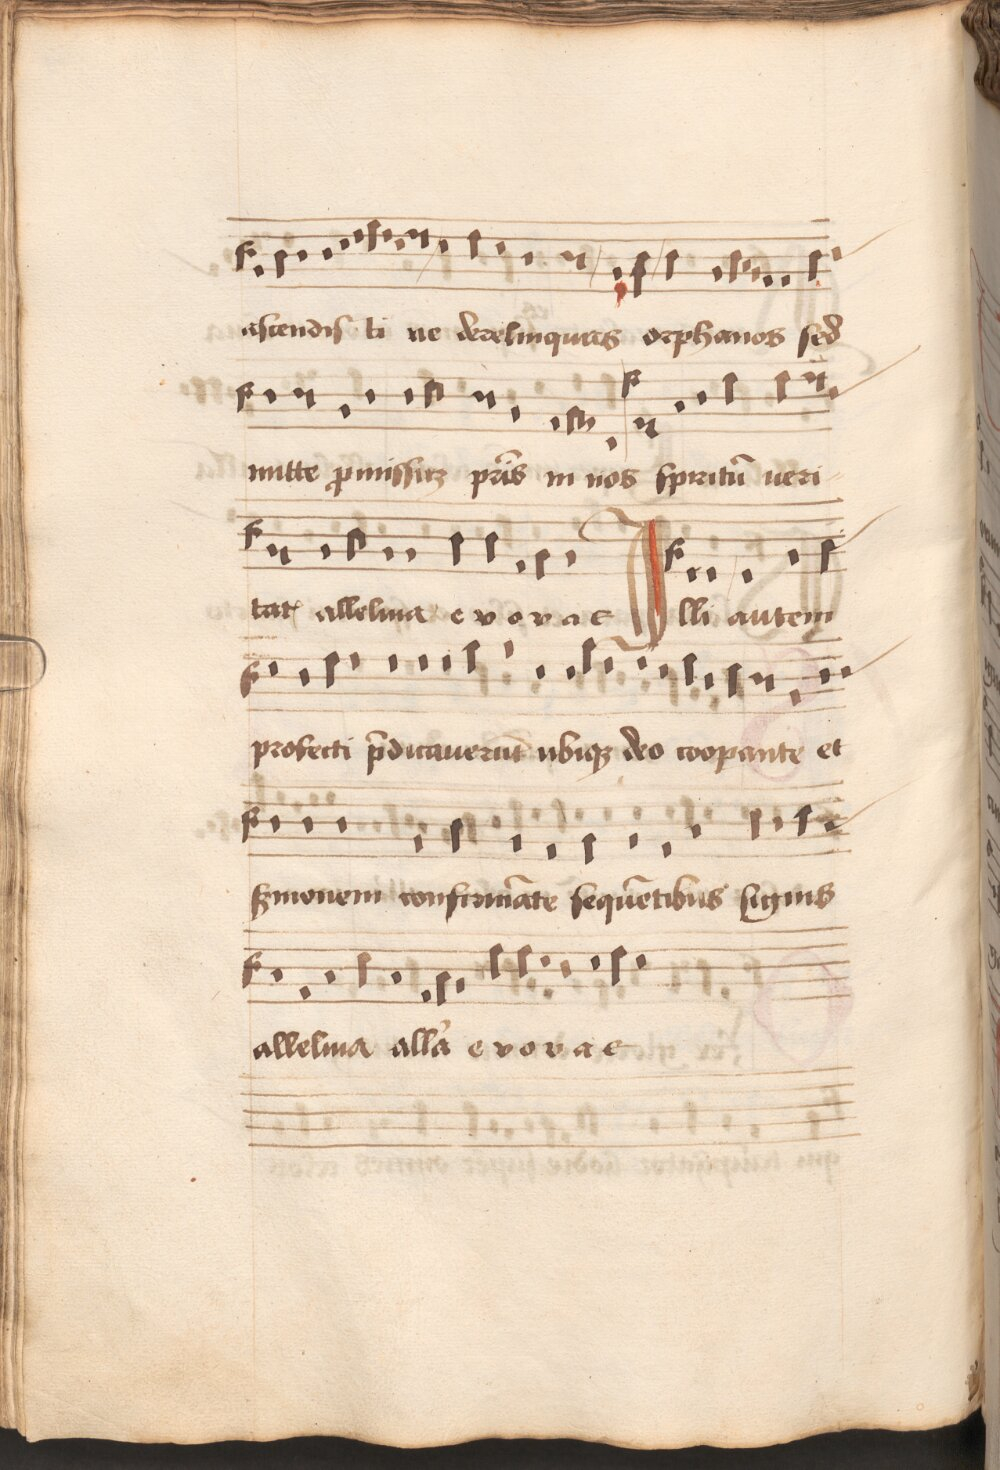 ascendis ti ne derelinquas orphanos sed
mitte ꝓmissuꝫ pr̄is in nos spiritū ueri
tatꝭ alleluia e v o v a e Illi autem
profecti p̄dicauerūt ubiqꝫ deo coopante et
sermonem confirmāte sequētibus signis
alleluia all̄a e v o v a e